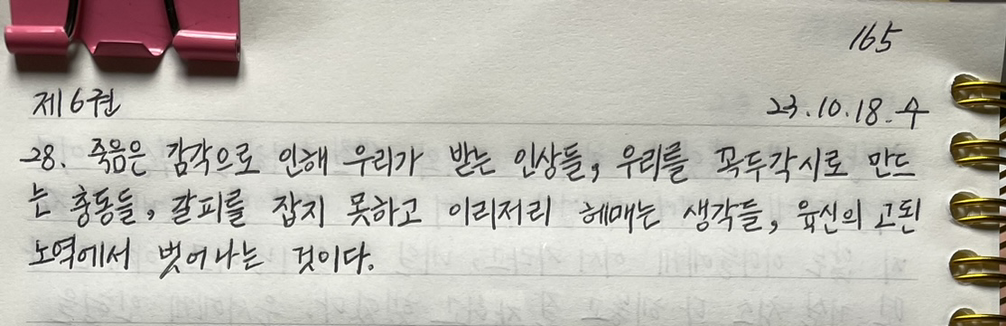 165
제6권 23.10.18.수
28. 죽음은 감각으로 인해 우리가 받는 인상들, 우리를 꼭두각시로 만드
는 충동들, 갈피를 잡지 못하고 이리저리 헤매는 생각들, 육신의 고된
노역에서 벗어나는 것이다.